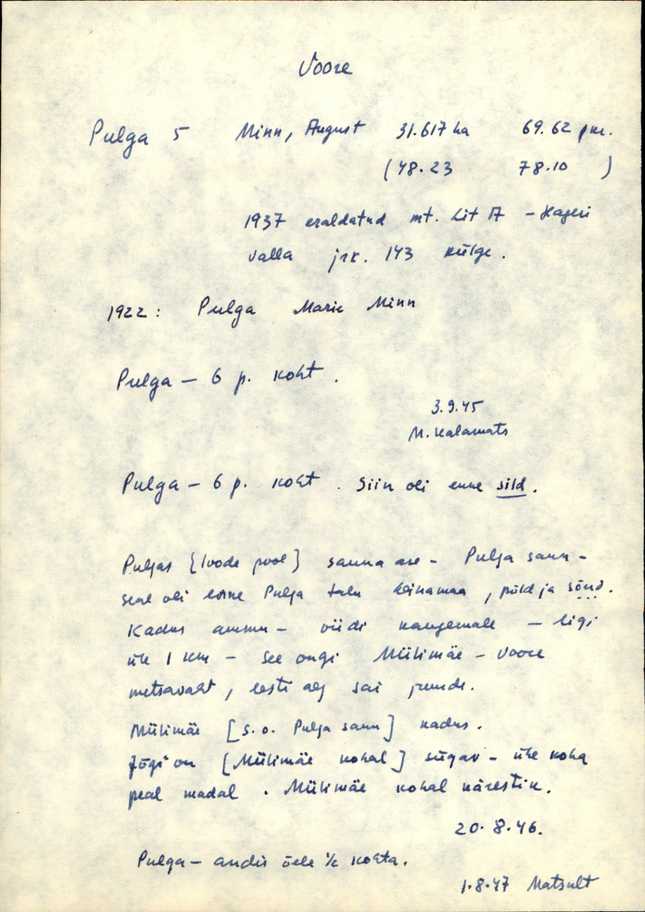 Voore
Pulga 5 Minn, August 31.617 ha 69.62 pkr.
(48.23 78.10 )
1937 eraldatud mt. Lit A - Hageri
valla jrk. 143 külge.
1922: Pulga Marie Minn
Pulga - 6 p. koht.
3.9.45
M. Kalamats
Pulga - 6 p. koht. Siin oli enne sild.
Puljas [loode pool] sauna ase - Pulja saun -
seal oli enne Pulja talu heinamaa, põld ja
Kadus ammu - viidi kaugemale - ligi
üle 1 km - See ongi Mülimäe - Voore
metsavaht, Eesti aeg sai juude.
Mülimäe [s.o. Pulja saun] kadus.
Jõgi on [Mülimäe kohal] sügav - ühe koha
peal madal. Mülimäe kohal kärestik.
20.8.46.
Pulga - andis õele ½ kohta.
1.8.47